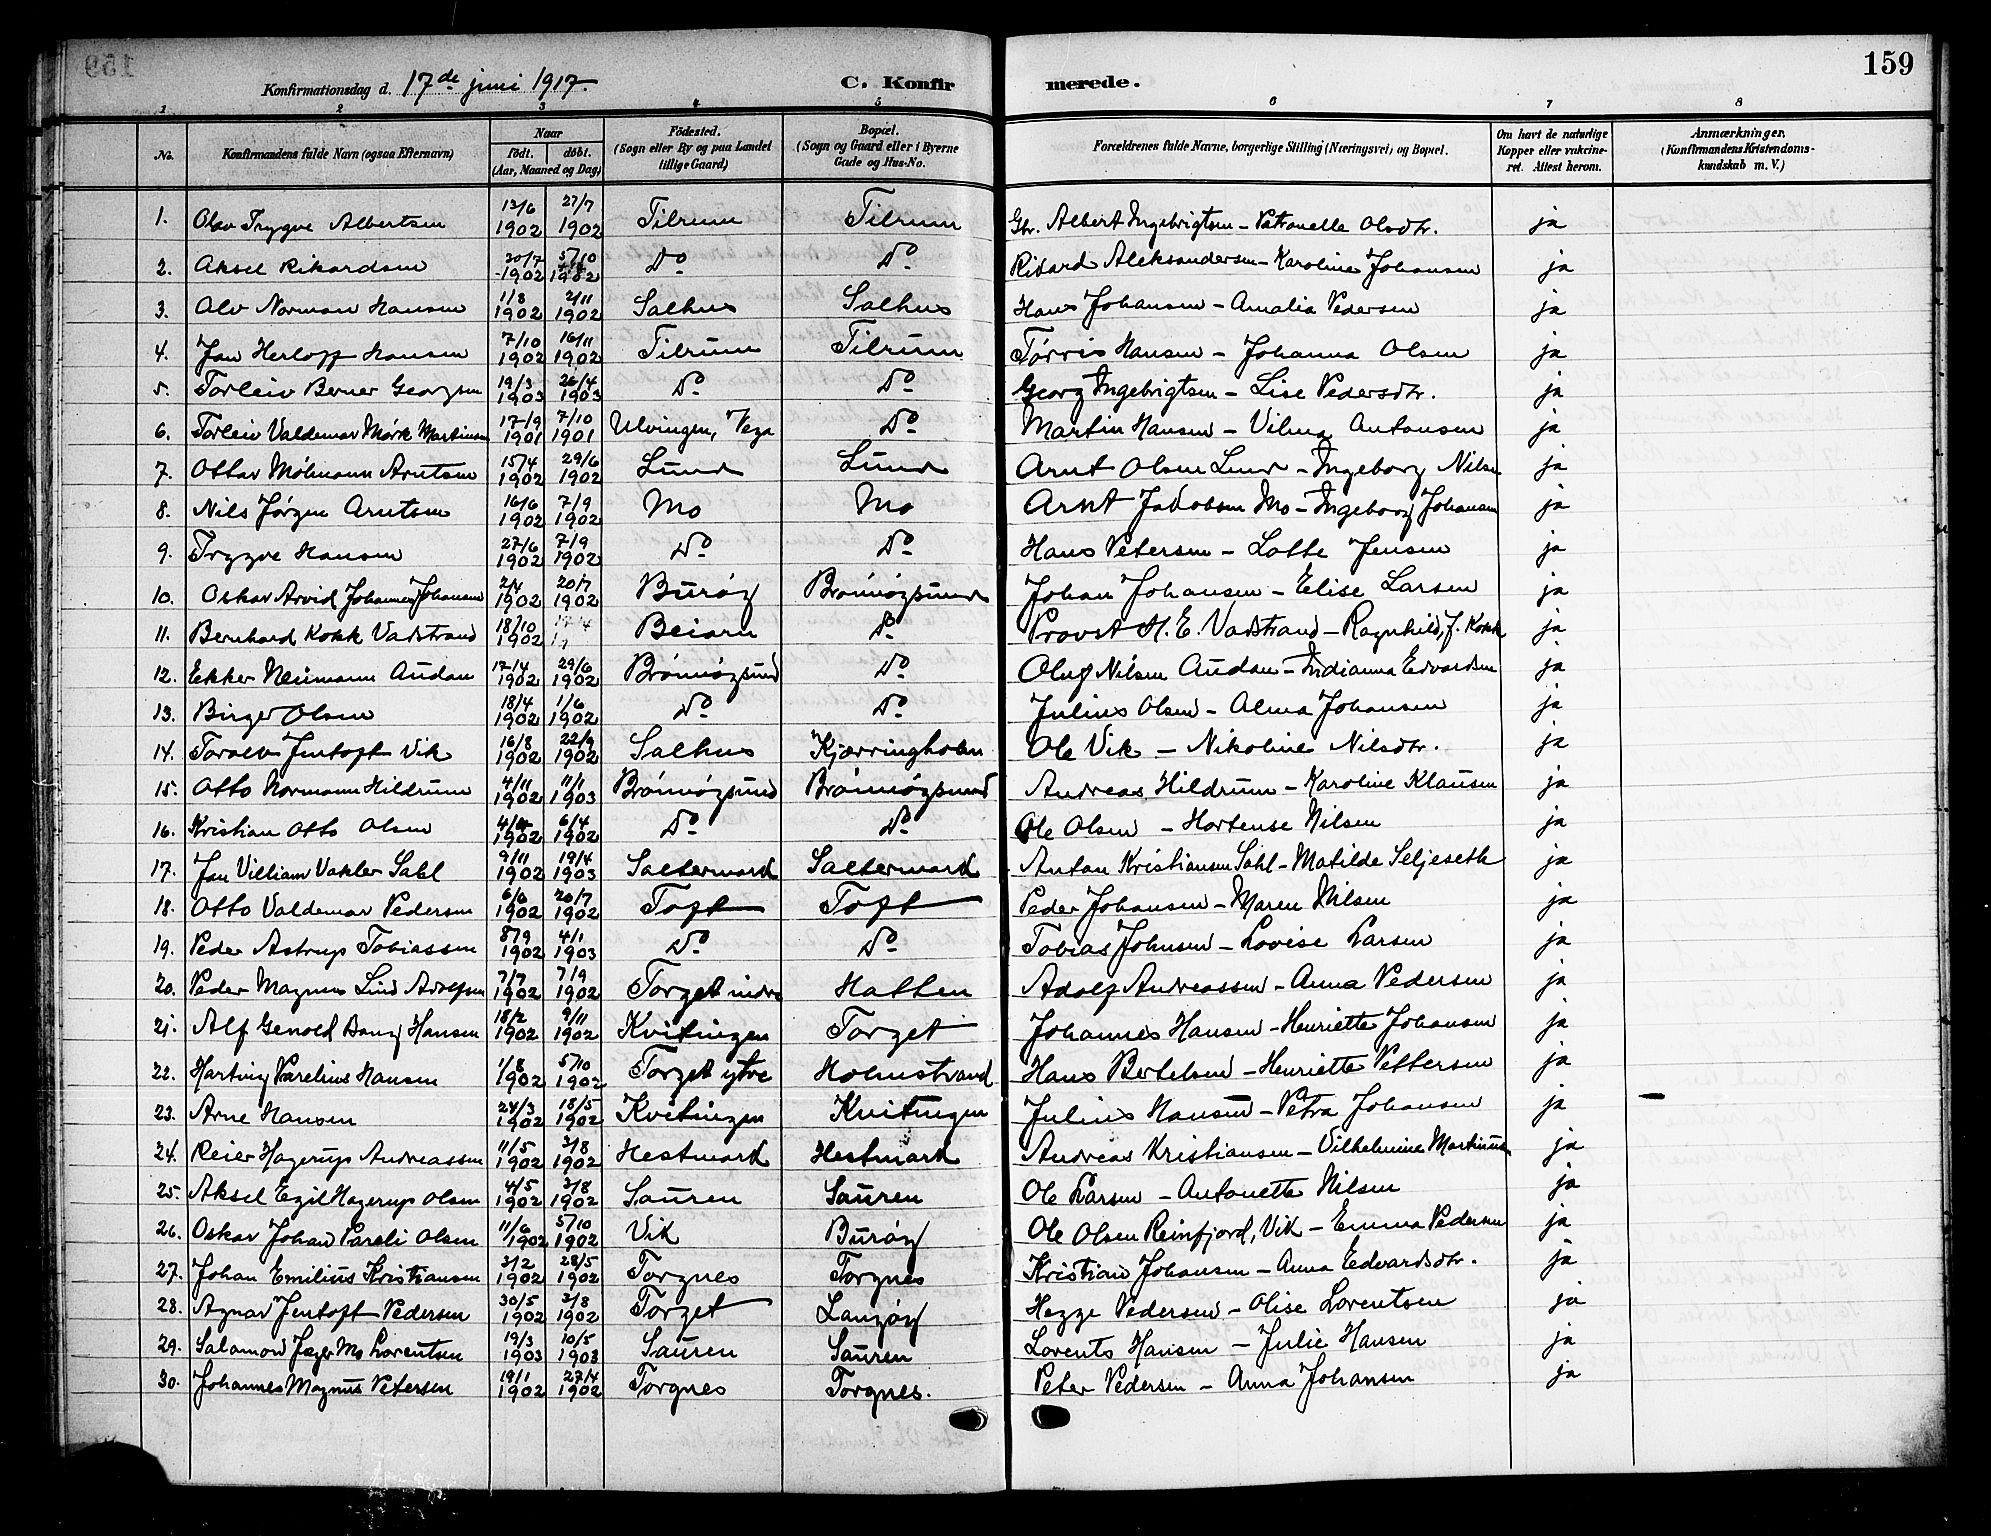 159
Konfirmationsdag d. 17de juni 1917. C. Konfirmerede.
1 2 3 4 5 6 7 8
No. Konfirmandens fulde Navn (ogsaa Efternavn) Naar födt. döbt. (Aar, Maaned og Dag) Födested. (Sogn eller By og paa Landet tillige Gaard) Bopæl. (Sogn og Gaard eller i Byerne Gade og Hus-No. Forældrenes fulde Navne, borgerlige Stilling (Næringsvei) og Bopæl. Om havt de naturlige Kopper eller vakcineret. Attest herom. Anmærkninger. (Konfirmandens Kristendomskundskab m. V.)
1. Olav Trygve Albertsen 13/6 1902 27/7 1902 Tilrum Tilrum Gbr. Albert Ingebrigtsen – Petronelle Olsdtr. ja
2. Aksel Rikardsen 20/7 1902 5/10 1902 Do Do Rikard Aleksandersen – Karoline Johansen ja
3. Olv Norman Hansen 1/8 1902 2/11 1902 Salhus Salhus Hans Johansen – Amalia Pedersen ja
4. Jan Herloff Hansen 7/10 1902 16/11 1902 Tilrum Tilrum Tørris Hansen – Johanna Olsen ja
5. Torleiv Berner Georgsen 19/3 1903 26/4 1903 Do Do Georg Ingebrigtsen – Lise Pedersdtr. ja
6. Torleiv Valdemar Mørk Martinsen 17/9 1901 7/10 1901 Ulvingen, Vega Do Martin Hansen – Vilma Antonsen ja
7. Ottar Mølmann Arntsen 15/4 1902 29/6 1902 Lund Lund Arnt Olsen Lund – Ingeborg Nilsen ja
8. Nils Jørgen Arntsen 16/6 1902 7/9 1902 Mo Mo Arnt Jakobsen Mo – Ingeborg Johansen ja
9. Trygve Hansen 27/6 1902 7/9 1902 Do Do Hans Petersen – Lotte Jensen ja
10. Oskar Arvid Johannes Johansen 2/4 1902 20/7 1902 Burøy Brønnøysund Johan Johansen – Elise Larsen ja
11. Bernhard Kokk Vadstrand 18/10 1902 Beiarn Do Provst H. E. Vadstrand – Ragnhild, f. Kokk ja
12. Ekker Neumann Audan 17/4 1902 29/6 1902 Brønnøysund Do Oluf Nilsen Audan – Indianna Edvardsen ja
13. Birger Olsen 18/4 1902 1/6 1902 Do Do Julius Olsen – Alma Johansen ja
14. Toralv Jentoft Vik 16/8 1902 22/9 1902 Salhus Kjærringholm Ole Vik – Nikoline Nilsdtr. ja
15. Otto Normann Hildrum 4/11 1902 11/1 1903 Brønnøysund Brønnøysund Andreas Hildrum – Karoline Klausen ja
16. Kristian Otto Olsen 1902 6/4 1902 Do Do Ole Olsen – Hortense Nilsen ja
17. Jan Villiam Vakler Sahl 9/11 1902 19/4 1903 Saltermark Saltermark Anton Kristiansen Sahl – Matilde Seljeseth ja
18. Otto Valdemar Pedersen 6/6 1902 20/7 1902 Toft Toft Peder Johansen – Maren Nilsen ja
19. Peder Astrup Tobiassen 8/9 1902 4/1 1903 Do Do Tobias Johnsen – Lovise Larsen ja
20. Peder Magnus Lind Adolfsen 7/7 1902 7/9 1902 Torget indre Hatten Adolf Andreassen – Anna Pedersen ja
21. Alf Genold Hansen 18/2 1902 9/11 1902 Kvitingen Torget Johannes Hansen – Henriette Johansen ja
22. Hartvig Parelius Hansen 1/8 1902 5/10 1902 Torget ytre Holmstrand Hans Bertelsen – Henriette Pettersen ja
23. Arne Hansen 24/3 1902 18/5 1902 Kvitingen Kvitingen Julius Hansen – Petra Johansen ja –
24. Reier Hagerup Andreassen 11/5 1902 3/8 1902 Hestmark Hestmark Andreas Kristiansen – Vilhelmine Martinusen ja
25. Aksel Egil Hagerup Olsen 4/5 1902 3/8 1902 Sauren Sauren Ole Larsen – Antonette Nilsen ja
26. Oskar Johan Pareli Olsen 11/6 1902 5/10 1902 Vik Burøy Ole Olsen Reinfjord, Vik – Emma Pedersen ja
27. Johan Emilius Kristiansen 3/2 1902 28/5 1902 Torgnes Torgnes Kristian Johansen – Anna Edvardsdtr. ja
28. Agnar Jentoft Pedersen 30/5 1902 3/8 1902 Torget Langøy Hegge Pedersen – Olise Lorentsen ja
29. Salamon Jæger Mo Lorentsen 19/3 1903 10/5 1903 Sauren Sauren Lorents Hansen – Julie Hansen ja
30. Johannes Magnus Petersen 19/1 1902 27/4 1902 Torgnes Torgnes. Peter Pedersen – Anna Johansen ja